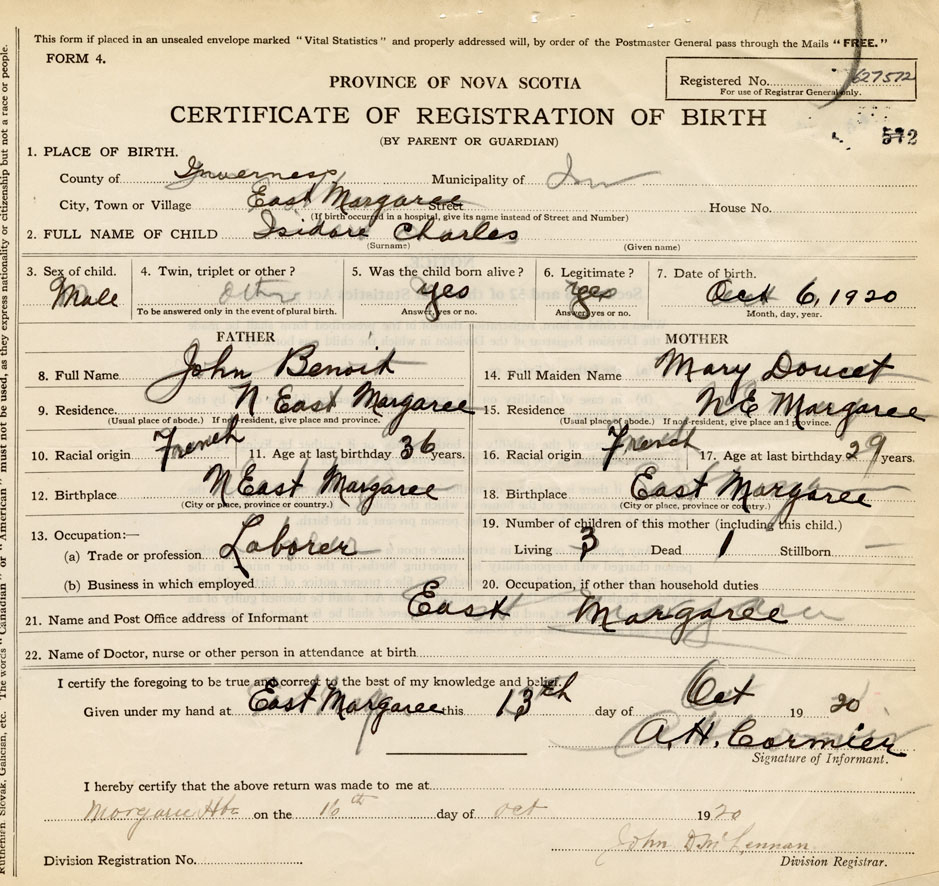 This form if placed in an unsealed envelope marked "Vital Statistics" and properly addressed will, by order of the Postmaster General pass through the Mails "FREE."
FORM 4.
Registered No. 627572
For use of Registrar General only.
PROVINCE OF NOVA SCOTIA
CERTIFICATE OF REGISTRATION OF BIRTH
572
(BY PARENT OR GUARDIAN)
1. PLACE OF BIRTH.
County of Inverness Municipality of Inv
City, Town or Village East Margaree Street House No.
(If birth occurred in a hospital, give its name instead of Street and Number)
2. FULL NAME OF CHILD Isidore Charles
(Surname) (Given name)
3. Sex of child. 4. Twin, triplet or other? 5. Was the child born alive? 6. Legitimate? 7. Date of birth.
Male other yes yes Oct 6, 1920
To be answered only in the event of plural birth. Answer, yes or no. Answer, yes or no. Month, day, year.
FATHER
8. Full Name John Benoit
9. Residence. N East Margaree
(Usual place of abode.) If non-resident, give place and province.
10. Racial origin French 11. Age at last birthday 36 years.
12. Birthplace N East Margaree
(City or place, province or country.)
13. Occupation:—
(a) Trade or profession Laborer
(b) Business in which employed
MOTHER
14. Full Maiden Name Mary Doucet
15. Residence N E Margaree
(Usual place of abode.) If non-resident, give place and province.
16. Racial origin French 17. Age at last birthday 29 years.
18. Birthplace East Margaree
(City or place, province or country.)
19. Number of children of this mother (including this child.)
Living 3 Dead 1 Stillborn —
20. Occupation, if other than household duties
21. Name and Post Office address of Informant East Margaree
22. Name of Doctor, nurse or other person in attendance at birth
I certify the foregoing to be true and correct to the best of my knowledge and belief.
Given under my hand at East Margaree this 13th day of Oct 1920
A. H. Cormier
Signature of Informant.
I hereby certify that the above return was made to me at
Margaree Hbr on the 16th day of Oct 1920
John D McLennan
Division Registration No. Division Registrar.
Ruthenian, Slovak, Galician, etc. The words "Canadian" or "American" must not be used, as they express nationality or citizenship but not a race or people.